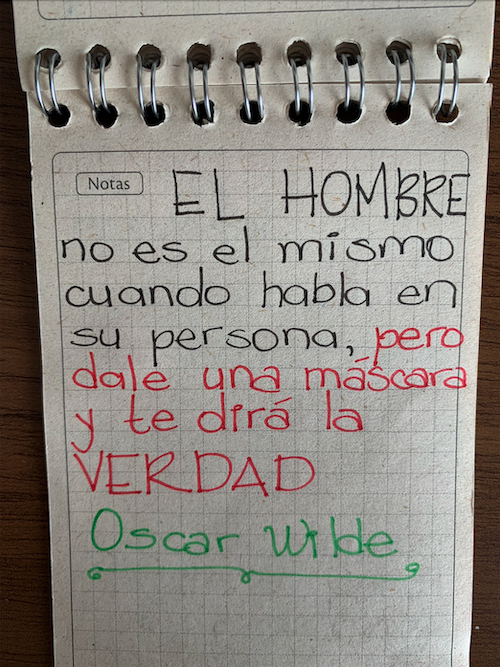 Notas
EL HOMBRE
no es el mismo
cuando habla en
su persona, pero
dale una máscara
y te dirá la
VERDAD
Oscar Wilde